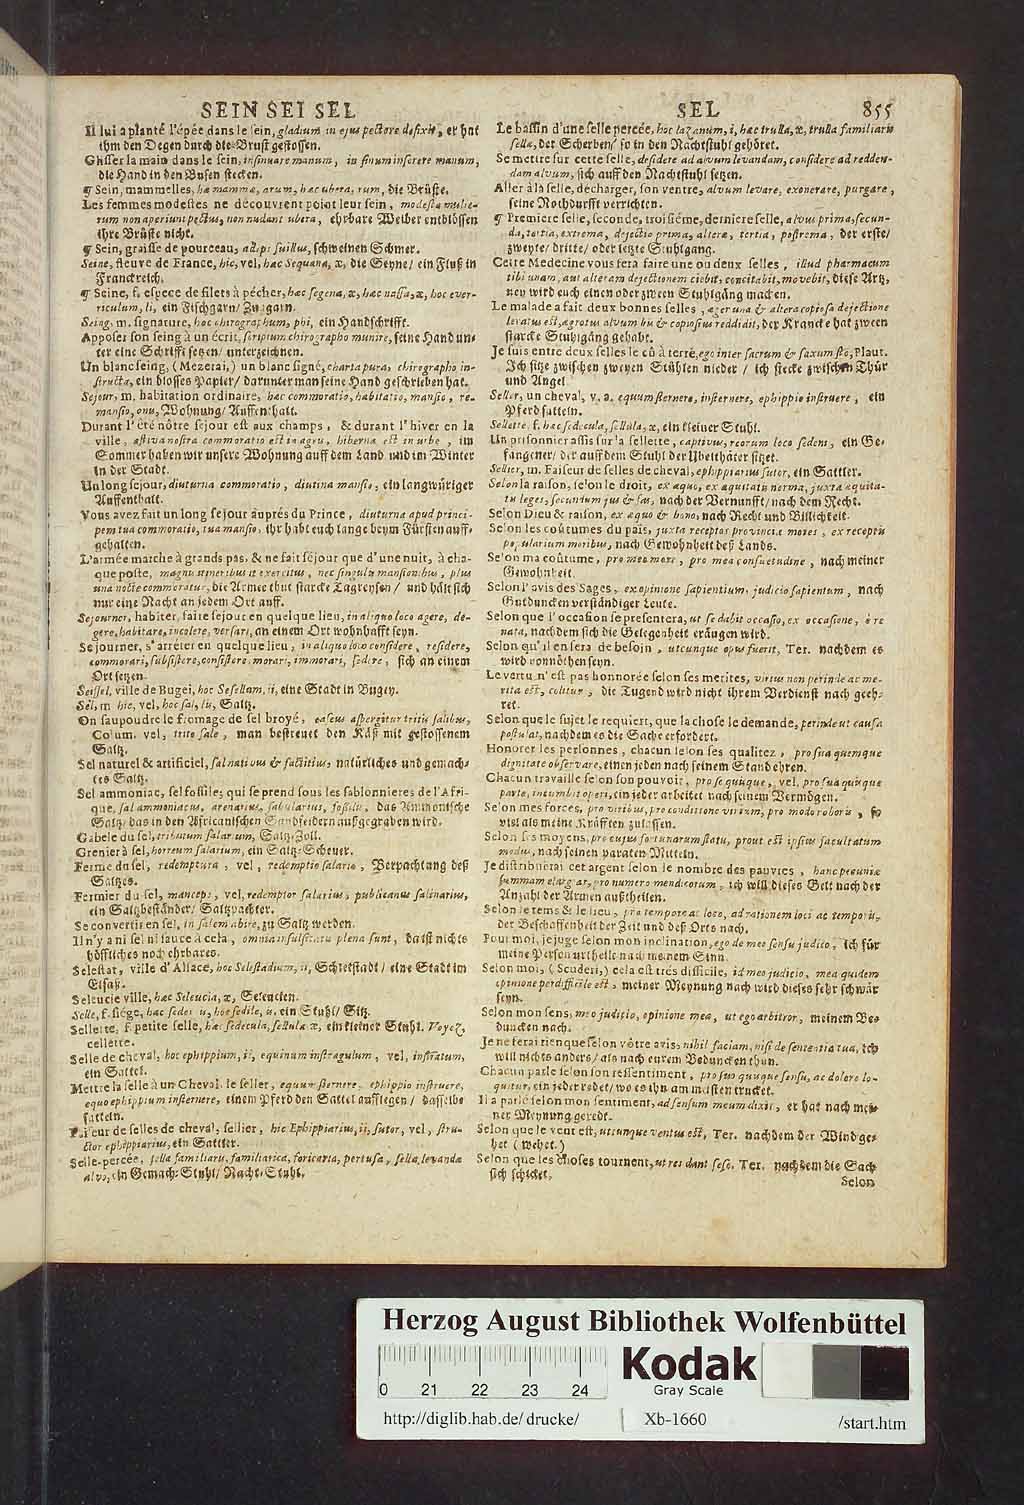 SEIN SEI SEL
Il lui a planté l'épée dans le sein, gladium in ejus pectore defixit, er hat
ihm den Degen durch die Brust gestossen.
Glisser la main dans le sein, insinuare manum, in sinum inserere manum,
die Hand in den Busen stecken.
¶ Sein, mammelles, hæ mammæ, arum, hæc ubera, rum, die Brüste.
Les femmes modestes ne découvrent point leur sein, modestæ mulie-
rum non aperiunt pectus, non nudant ubera, ehrbare Weiber entblössen
ihre Brüste nicht.
¶ Sein, graisse de pourceau, adeps suillus, schweinen Schmer.
Seine, fleuve de France, hic, vel, hæc Sequana, æ, die Seyne/ ein Fluß in
Franckreich.
¶ Seine, f. espece de filets à pécher, hæc segena, æ, hæc nassa, æ, hoc ever-
riculum, li, ein Fischgarn/ Zuggarn.
Seing, m. signature, hoc chirographum, phi, ein Handschrifft.
Apposer son seing à un écrit, scriptum chirographo munire, seine Hand un-
ter eine Schrifft setzen/ unterzeichnen.
Un blanc seing, (Mezerai,) un blanc signé, charta pura, chirographo in-
structa, ein blosses Papier/ darunter man seine Hand geschrieben hat.
Sejour, m. habitation ordinaire, hæc commoratio, habitatio, mansio, re-
mansio, onis, Wohnung/ Auffenthalt.
Durant l'été nôtre sejour est aux champs, & durant l'hiver en la
ville, æstiva nostra commoratio est in agris, hiberna est in urbe, im
Sommer haben wir unsere Wohnung auff dem Land und im Winter
in der Stadt.
Un long sejour, diuturna commoratio, diutina mansio, ein langwüriger
Auffenthalt.
Vous avez fait un long sejour auprés du Prince, diuturna apud princi-
pem tua commoratio, tua mansio, ihr habt euch lange beym Fürsten auff-
gehalten.
L'armée marche à grands pas, & ne fait séjour que d'une nuit, à cha-
que poste, magnis itineribus it exercitus, nec singulis mansionibus, plus
una nocte commoratur, die Armee thut starcke Tagreysen/ und hält sich
nur eine Nacht an jedem Ort auff.
Sejourner, habiter, faire sejour en quelque lieu, in aliquo loco agere, de-
gere, habitare, incolere, versari, an einem Ort wohnhafft seyn.
Sejourner, s'arréter en quelque lieu, in aliquo loco considere, residere,
commorari, subsistere, consistere, morari, immorari, sedere, sich an einem
Ort setzen.
Seissel, ville de Bugei, hoc Sesellum, ii, eine Stadt in Bugey.
Sel, m hic, vel, hoc sal, lis, Saltz.
On saupoudre le fromage de sel broyé, caseus aspergitur tritis salibus,
Colum. vel, trito sale, man bestreuet den Käß mit gestossenem
Saltz.
Sel naturel & artificiel, sal nativus & factitius, natürliches und gemach-
tes Saltz.
Sel ammoniac, sel fossile, qui se prend sous les sablonnieres de l'Afri-
que, sal ammoniacus, arenarius, sabularius, fossilis, das Ammonische
Saltz/ das in den Africanischen Sandfeldern auffgegraben wird.
Gabele du sel, tributum salarium, Saltz-Zoll.
Grenier à sel, horreum salarium, ein Saltz-Scheuer.
Ferme du sel, redemptura, vel, redemptio salario, Verpachtung deß
Saltzes.
Fermier du sel, manceps, vel, redemptor salarius, publicanus salinarius,
ein Saltzbeständer/ Saltzpachter.
Se convertir en sel, in salem abire, zu Saltz werden.
Il n'y a ni sel ni sauce à cela, omnia insulsitatis plena sunt, da ist nichts
höffliches noch ehrbares.
Selestat, ville d'Alsace, hoc Selestadium, ii, Schletstadt/ eine Stadt im
Elsaß.
Seleucie ville, hæc Seleucia, æ, Seleucien.
Selle, f. siége, hæc sedes is, hoc sedile, is, ein Stuhl/ Sitz.
Sellette, f. petite selle, hæc sedecula, sellula æ, ein kleiner Stuhl. Voyez,
cellette.
Selle de cheval, hoc ephippium, ii, equinum instragulum, vel, instratum,
ein Sattel.
Mettre la selle à un Cheval, le seller, equum sternere, ephippio instruere,
equo ephippium insternere, einem Pferd den Sattel aufflegen/ dasselbe
satteln.
Faiseur de selles de cheval, sellier, hic Ephippiarius, ii, sutor, vel, stru-
ctor ephippiarius, ein Sattler.
Selle-percée, sella familiaris, familiarica, foricaria, pertusa, sella levandæ
alvo, ein Gemach-Stuhl/ Nacht-Stuhl.
SEL 855
Le bassin d'une selle percée, hoc lazanum, i, hæc trulla, æ, trulla familiaris
sellæ, der Scherben/ so in den Nachtstuhl gehöret.
Se mettre sur cette selle, desidere ad alvum levandam, considere ad redden-
dam alvum, sich auff den Nachtstuhl setzen.
Aller à la selle, décharger, son ventre, alvum levare, exonerare, purgare,
seine Nothdurfft verrichten.
¶ Premiere selle, seconde, troisiéme, derniere selle, alvus prima, secun-
da, tertia, extrema, dejectio prima, altera, tertia, postrema, der erste/
zweyte/ dritte/ oder letzte Stuhlgang.
Cette Medecine vous fera faire une ou deux selles, illud pharmacum
tibi unam, aut alteram dejectionem ciebit, concitabit, movebit, diese Artz-
ney wird euch einen oder zween Stuhlgäng machen.
Le malade a fait deux bonnes selles, æger una & altera copiosa dejectione
levatus est, ægrotus alvum bis & copiosius reddidit, der Krancke hat zween
starcke Stuhlgäng gehabt.
Je suis entre deux selles le cû à terre, ego inter sacrum & saxum sto, Plaut.
Ich sitze zwischen zweyen Stühlen nieder/ ich stecke zwischen Thür
und Angel
Seller, un cheval, v. a. equum sternere, insternere, ephippio instruere, ein
Pferd satteln.
Sellette, f. hæc sedecula, sellula, æ, ein kleiner Stuhl.
Un prisonnier assis sur la sellette, captivus, reorum loco sedens, ein Ge-
fangener/ der auff dem Stuhl der Ubelthäter sitzet.
Sellier, m. Faiseur de selles de cheval, ephippiarius sutor, ein Sattler.
Selon la raison, selon le droit, ex æquo, ex æquitatis norma, juxta æquita-
tis leges, secundum jus & fas, nach der Vernunfft/ nach dem Recht.
Selon Dieu & raison, ex æquo & bono, nach Recht und Billichkeit.
Selon les coûtumes du païs, juxta receptos provinciæ mores, ex receptis
popularium moribus, nach Gewohnheit deß Lands.
Selon ma coûtume, pro meo more, pro mea consuetudine, nach meiner
Gewohnheit.
Selon l'avis des Sages, ex opinione sapientium, judicio sapientum, nach
Gutduncken verständiger Leute.
Selon que l'occasion se presentera, ut se dabit occasio, ex occasione, è re
nata, nachdem sich die Gelegenheit eräugen wird.
Selon qu'il en sera de besoin, utcunque opus fuerit, Ter. nachdem es
wird vonnöthen seyn.
Le vertu n'est pas honnorée selon ses merites, virtus non perinde ac me-
rita est, colitur, die Tugend wird nicht ihrem Verdienst nach geeh-
ret.
Selon que le sujet le requiert, que la chose le demande, perinde ut causa
postulat, nachdem es die Sache erfordert.
Honorer les personnes, chacun selon ses qualitez, pro sua quemque
dignitate observare, einen jeden nach seinem Stand ehren.
Chacun travaille selon son pouvoir, pro se quisque, vel, pro sua quisque
parte, incumbit operi, ein jeder arbeitet nach seinem Vermögen.
Selon mes forces, pro viribus, pro conditione virium, pro modo roboris, so
viel als meine Kräfften zulassen.
Selon ses moyens, pro cujus fortunarum statu, prout est ipsius facultatum
modus, nach seinen paraten Mitteln.
Je distribuërai cet argent selon le nombre des pauvres, hanc pecuniæ
summam elargiar, pro numero mendicorum, ich will dieses Gelt nach der
Anzahl der Armen außtheilen.
Selon le tems & le lieu, pro tempore ac loco, ad rationem loci ac temporis,
der Beschaffenheit der Zeit und deß Orts nach.
Pour moi, je juge selon mon inclination, ego de meo sensu judico, ich für
meine Person urtheile nach meinem Sinn.
Selon moi, (Scuderi,) cela est trés difficile, id meo judicio, mea quidem
opinione perdifficile est, meiner Meynung nach wird dieses sehr schwär
seyn.
Selon mon sens, meo judicio, opinione mea, ut ego arbitror, meinem Be-
duncken nach.
Je ne ferai rien que selon vôtre avis, nihil faciam, nisi de sententia tua, ich
will nichts anders/ als nach eurem Beduncken thun.
Chacun parle selon son ressentiment, pro suo quisque sensu, ac dolore lo-
quitur, ein jeder redet/ wo es ihn am meisten trucket.
Il a parlé selon mon sentiment, ad sensum meum dixit, er hat nach mei-
ner Meynung geredt.
Selon que le vent est, utcunque ventus est, Ter. nachdem der Wind ge-
het (wehet.)
Selon que les choses tournent, ut res dant sese. Ter. nachdem die Sach
sich schicket.
Selon
Herzog August Bibliothek Wolfenbüttel
Kodak
Gray Scale
0 21 22 23 24
http://diglib.hab.de/drucke/ Xb-1660 /start.htm